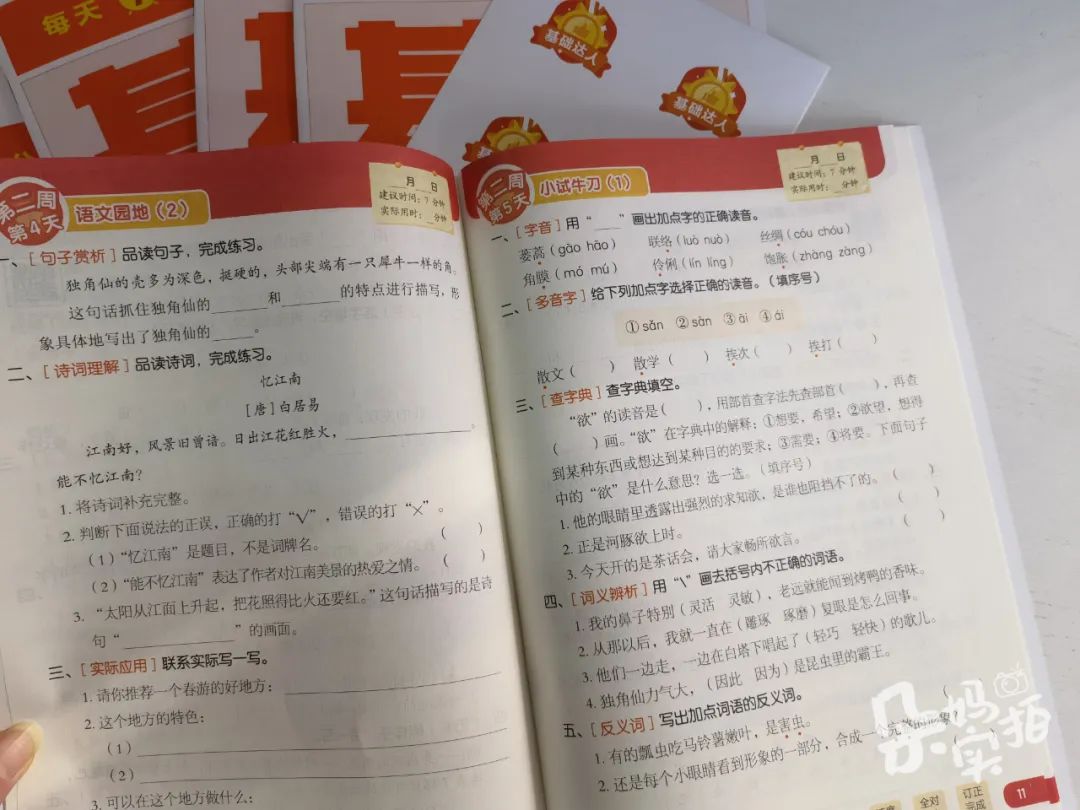 每天
基础达人
基础达人
第二周
第4天
语文园地（2）
___月___日
建议时间：7 分钟
实际用时：__分钟
一、[ 句子赏析 ] 品读句子，完成练习。
独角仙的壳多为深色，挺硬的，头部尖端有一只犀牛一样的角。
这句话抓住独角仙的______和______的特点进行描写，形
象具体地写出了独角仙的______。
二、[ 诗词理解 ] 品读诗词，完成练习。
忆江南
[唐] 白居易
江南好，风景旧曾谙。日出江花红胜火，______________。
能不忆江南？
1. 将诗词补充完整。
2. 判断下面说法的正误，正确的打“√”，错误的打“×”。
（1）“忆江南”是题目，不是词牌名。（ ）
（2）“能不忆江南”表达了作者对江南美景的热爱之情。（ ）
3. “太阳从江面上升起，把花照得比火还要红。”这句话描写的是诗
句“____________”的画面。
三、[ 实际应用 ] 联系实际写一写。
1. 请你推荐一个春游的好地方：____________________
2. 这个地方的特色：
（1）______________________________
（2）______________________________
3. 可以在这个地方做什么：
第二周
第5天
小试牛刀（1）
___月___日
建议时间：7 分钟
实际用时：__分钟
一、[ 字音 ] 用“____”画出加点字的正确读音。
蒌蒿（gāo hāo） 联络（luò nuò） 丝绸（cóu chóu）
角膜（mó mú） 伶俐（lín líng） 饱胀（zhàng zàng）
二、[ 多音字 ] 给下列加点字选择正确的读音。（填序号）
①sǎn ②sàn ③āi ④ái
散文（ ） 散学（ ） 挨次（ ） 挨打（ ）
三、[ 查字典 ] 查字典填空。
“欲”的读音是（ ），用部首查字法先查部首（ ），再查
（ ）画。“欲”在字典中的解释：①想要，希望；②欲望，想得
到某种东西或想达到某种目的的要求；③需要；④将要。下面句子
中的“欲”是什么意思？选一选。（填序号）
1. 他的眼睛里透露出强烈的求知欲，是谁也阻挡不了的。（ ）
2. 正是河豚欲上时。（ ）
3. 今天开的是茶话会，请大家畅所欲言。（ ）
四、[ 词义辨析 ] 用“\”画去括号内不正确的词语。
1. 我的鼻子特别（灵活 灵敏），老远就能闻到烤鸭的香味。
2. 从那以后，我就一直在（雕琢 琢磨）复眼是怎么回事。
3. 他们一边走，一边在白塔下唱起了（轻巧 轻快）的歌儿。
4. 独角仙力气大，（因此 因为）是昆虫里的霸王。
五、[ 反义词 ] 写出加点词语的反义词。
1. 有的瓢虫吃马铃薯嫩叶，是害虫。（ ）
2. 还是每个小眼睛看到形象的一部分，合成一个完整的形象？（ ）
全对
订正
完成
11
朵妈
实拍